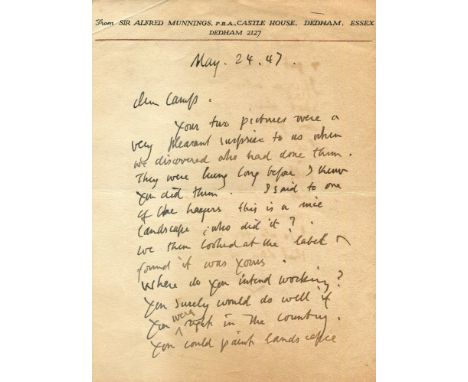 From SIR ALFRED MUNNINGS, P.R.A., CASTLE HOUSE, DEDHAM, ESSEX
DEDHAM 2127
May. 24. 47.
Dear Camp.
Your two pictures were a
very pleasant surprise to us when
we discovered who had done them.
They were hung long before I knew
you did them. I said to one
of the hangers this is a nice
landscape, who did it?
We then looked at the label &
found it was yours.
Where do you intend working?
You surely would do well if
you were right in the country.
You could paint landscape